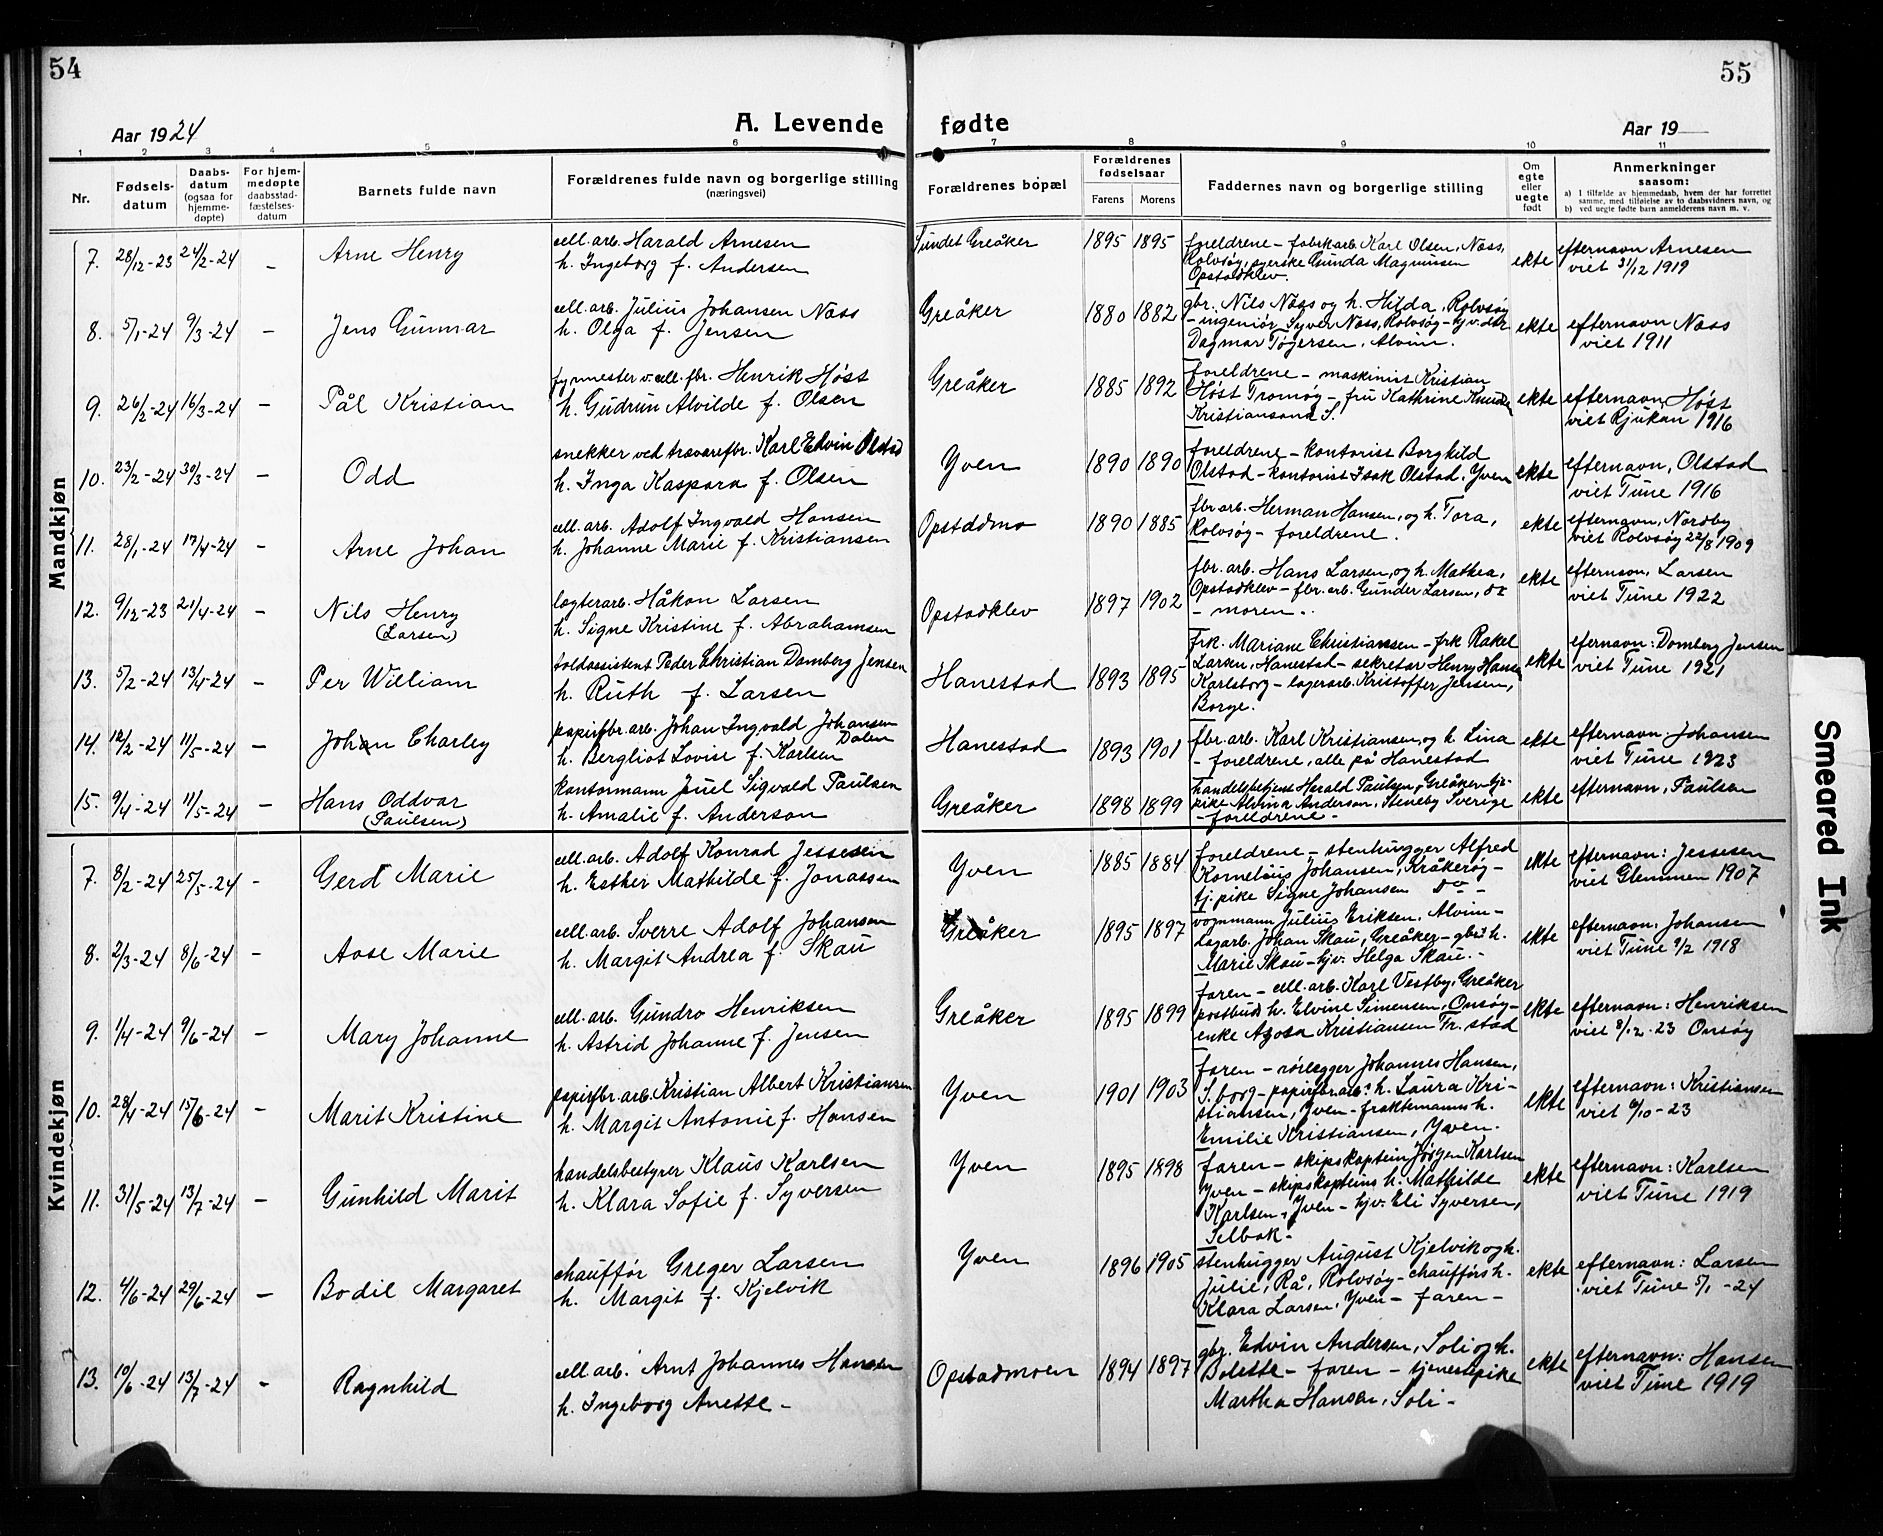 54
Aar 1924
A. Levende
fødte
Aar 19
55
1 2 3 4 5 6 7 8 9 10 11
Nr.
Fødsels-
datum
Daabs-
datum
(ogsaa for
hjemme-
døpte)
For hjem-
medøpte
daabsstad-
fæstelses-
datum
Barnets fulde navn
Forældrenes fulde navn og borgerlige stilling
(næringsvei)
Forældrenes bopæl
Forældrenes
fødselsaar
Farens Morens
Faddernes navn og borgerlige stilling
Om
egte
eller
uegte
født
Anmerkninger
saasom:
a) I tilfælde av hjemmedaab, hvem der har forrettet
samme, med tilføielse av to daabsvidners navn, og
b) ved uegte fødte barn anmelderens navn m. v.
Mandkjøn
7. 28/12-23 24/2-24 – Arne Henry
cell. arb. Harald Arnesen
h. Ingeborg f. Andersen
Sundet Greåker 1895 1895
foreldrene – fabrikarb. Karl Olsen, Næss,
Rolvsøy, syerske Gunda Magnusen
Opstadklev.
ekte
efternavn Arnesen
viet 31/12 1919
8. 5/1-24 9/3-24 – Jens Gunnar
cell. arb. Julius Johansen Næss
h. Olga f. Jensen
Greåker 1880 1882
gbr. Nils Næss og h. Hilda, Rolvsøy
– ingeniør Syver Næss, Rolvsøy – hjv. dtr
Dagmar Tøgersen, Alvim.
ekte
efternavn Næss
viet 1911
9. 26/2-24 16/3-24 – Pål Kristian
fyrmester v. cell. fbr. Henrik Høst
h. Gudrun Alvilde f. Olsen
Greåker 1885 1892
foreldrene – maskinist Kristian
Høst Tromøy – fru Kathrine Knudsen
Kristiansand S.
ekte
efternavn, Høst
viet Rjukan 1916
10. 23/2-24 30/3-24 – Odd
snekker ved trævarefbr. Karl Edvin Olstad
h. Inga Kaspara f. Olsen
Yven 1890 1890
foreldrene – kontorist Borghild
Olstad – kontorist Isak Olstad, Yven
ekte
efternavn, Olstad
viet Tune 1916
11. 28/1-24 17/4-24 – Arne Johan
cell. arb. Adolf Ingvald Hansen
h. Johanne Marie f. Kristiansen
Opstadmo 1890 1885
fbr. arb. Herman Hansen, og h. Tora,
Rolvsøy – foreldrene.
ekte
efternavn, Nordby
viet Rolvsøy 22/8 1909
12. 9/12-23 21/4-24 – Nils Henry
(Larsen)
lægterarb. Håkon Larsen
h. Signe Kristine f. Abrahamsen
Opstadklev 1897 1902
fbr. arb. Hans Larsen, og h. Mathea,
Opstadklev – fbr. arb. Gunder Larsen, do
– moren.
ekte
efternavn, Larsen
viet Tune 1922
13. 5/2-24 13/4-24 – Per William
toldassistent Peder Christian Domberg Jensen
h. Ruth f. Larsen
Hanestad 1893 1895
frk. Mariane Christianssen – frk Rakel
Larsen, Hanestad – sekretær Henry Hansen
Karlsborg – lagerarb. Kristoffer Jensen,
Borge.
ekte
efernavn: Domberg Jensen
viet Tune 1921
14. 12/2-24 11/5-24 – Johan Charley
papirfbr. arb. Johan Ingvald Johansen
Dalen
h. Bergliot Lovise f. Karlsen
Hanestad 1893 1901
fbr. arb. Karl Kristiansen, og h. Lina
– foreldrene, alle på Hanestad
ekte
efternavn, Johansen
viet Tune 1923
15. 9/4-24 11/5-24 – Hans Oddvar
(Paulsen)
kontormann Juel Sigvald Paulsen
h. Amalie f. Anderson
Greåker 1898 1899
handelsbetjent Harald Paulsen, Greåker tje-
pike Alvina Anderson, Steneby Sverige
– foreldrene –
ekte
efternavn, Paulsen
Kvindekjøn
7. 8/2-24 25/5-24 – Gerd Marie
cell. arb. Adolf Konrad Jessesen
h. Esther Mathilde f. Jonassen
Yven 1885 1884
foreldrene – stenhugger Alfred
Kornelius Johansen, Kråkerøy –
tj. pike Signe Johansen do –
ekte
efternavn: Jessesen
viet Glemmen 1907
8. 2/3-24 8/6-24 – Aase Marie
cell. arb. Sverre Adolf Johansen
h. Margit Andrea f. Skau
Greåker 1895 1897
vognmann Julius Eriksen, Alvim –
lagarb. Johan Skau, Greåker – gbrs h.
Marie Skau – hjv. Helga Skau. –
ekte
efternavn: Johansen
viet Tune 9/2 1918
9. 1/4-24 9/6-24 – Mary Johanne
cell. arb. Gundro Henriksen
h. Astrid Johanne f. Jensen
Greåker 1895 1899
faren – cell. arb. Karl Vestby, Greåker
postbud h. Elvine Simensen, Onsøy –
enke Agosa Kristiansen Fr. stad
ekte
efternavn: Henriksen
viet 8/12-23 Onsøy
10. 28/4-24 15/6-24 – Marit Kristine
papirfbr. arb. Kristian Albert Kristiansen
h. Margit Antonie f. Hansen
Yven 1901 1903
faren – rørlegger Johannes Hansen,
S.borg – papirfbrarbs h. Laura Kri-
stiansen, Yven – fraktemanns h.
Emilie Kristiansen, Yven.
ekte
efternavn: Kristiansen
viet 6/10-23
11. 31/5-24 13/7-24 – Gunhild Marit
handelsbestyrer Klaus Karlsen
h. Klara Sofie f. Syversen
Yven 1895 1898
faren – skipskaptein Jørgen Karlsen
Yven – skipskapteins h. Mathilde
Karlsen, Yven – hjv. Eli Syversen,
Selbak –
ekte
efternavn: Karlsen
viet Tune 1919
12. 4/6-24 29/6-24 – Bodil Margaret
chauffør Greger Larsen
h. Margit f. Kjelvik
Yven 1896 1905
stenhugger August Kjelvik og h.
Julie, Rå, Rolvsøy – chaufførs h.
Klara Larsen, Yven – faren –
ekte
efternavn: Larsen
viet Tune 5/1-24
13. 10/6-24 13/7-24 – Ragnhild
cell arb. Arnt Johannes Hansen
h. Ingeborg Anette –
Opstadmoen 1894 1897
gbr. Edvin Andersen, Soli og h.
Bolette – faren – tjenestepike
Martha Hansen, Soli –
ekte
efternavn: Hansen
viet Tune 1919
Smeared Ink